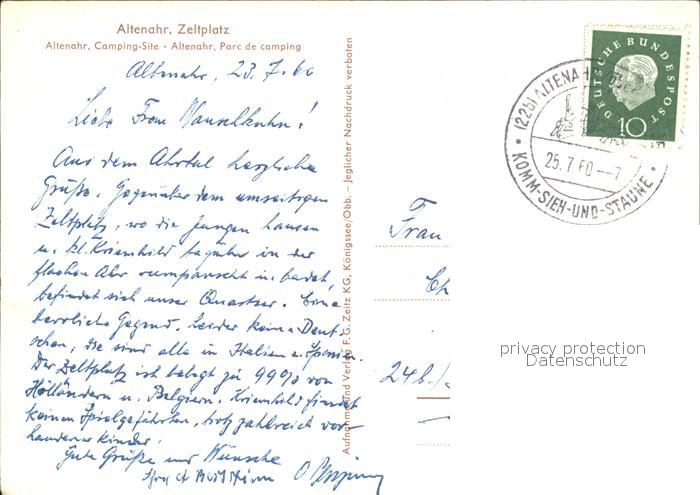 Altenahr, Zeltplatz
Altenahr, Camping-Site • Altenahr, Parc de camping
Altenahr, 23.7.60
Liebe Frau
Aus dem Ahrtal herzliche
Grüße. Gegenüber dem umseitigen
Zeltplatz, wo die Jungen hausen
u. kl. Kriemhild tagsüber in der
flachen Ahr rumpanscht u. badet,
befindet sich unser Quartier. Eine
herrliche Gegend. Leider keine Deut-
schen, die sind alle in Italien u. Spanien.
Der Zeltplatz ist belegt zu 99% von
Holländern u. Belgiern. Kriemhild findet
keinen Spielgefährten, trotz zahlreich vor-
handener Kinder.
Gute Grüße und Wünsche
Aufnahme und Verlag F. G. Zeitz KG, Königssee/Obb. – Jeglicher Nachdruck verboten
DEUTSCHE BUNDESPOST
10
(22b) ALTENAHR
25.7.60--7
KOMM-SIEH-UND-STAUNE
Frau
Ch
24b
privacy protection
Datenschutz